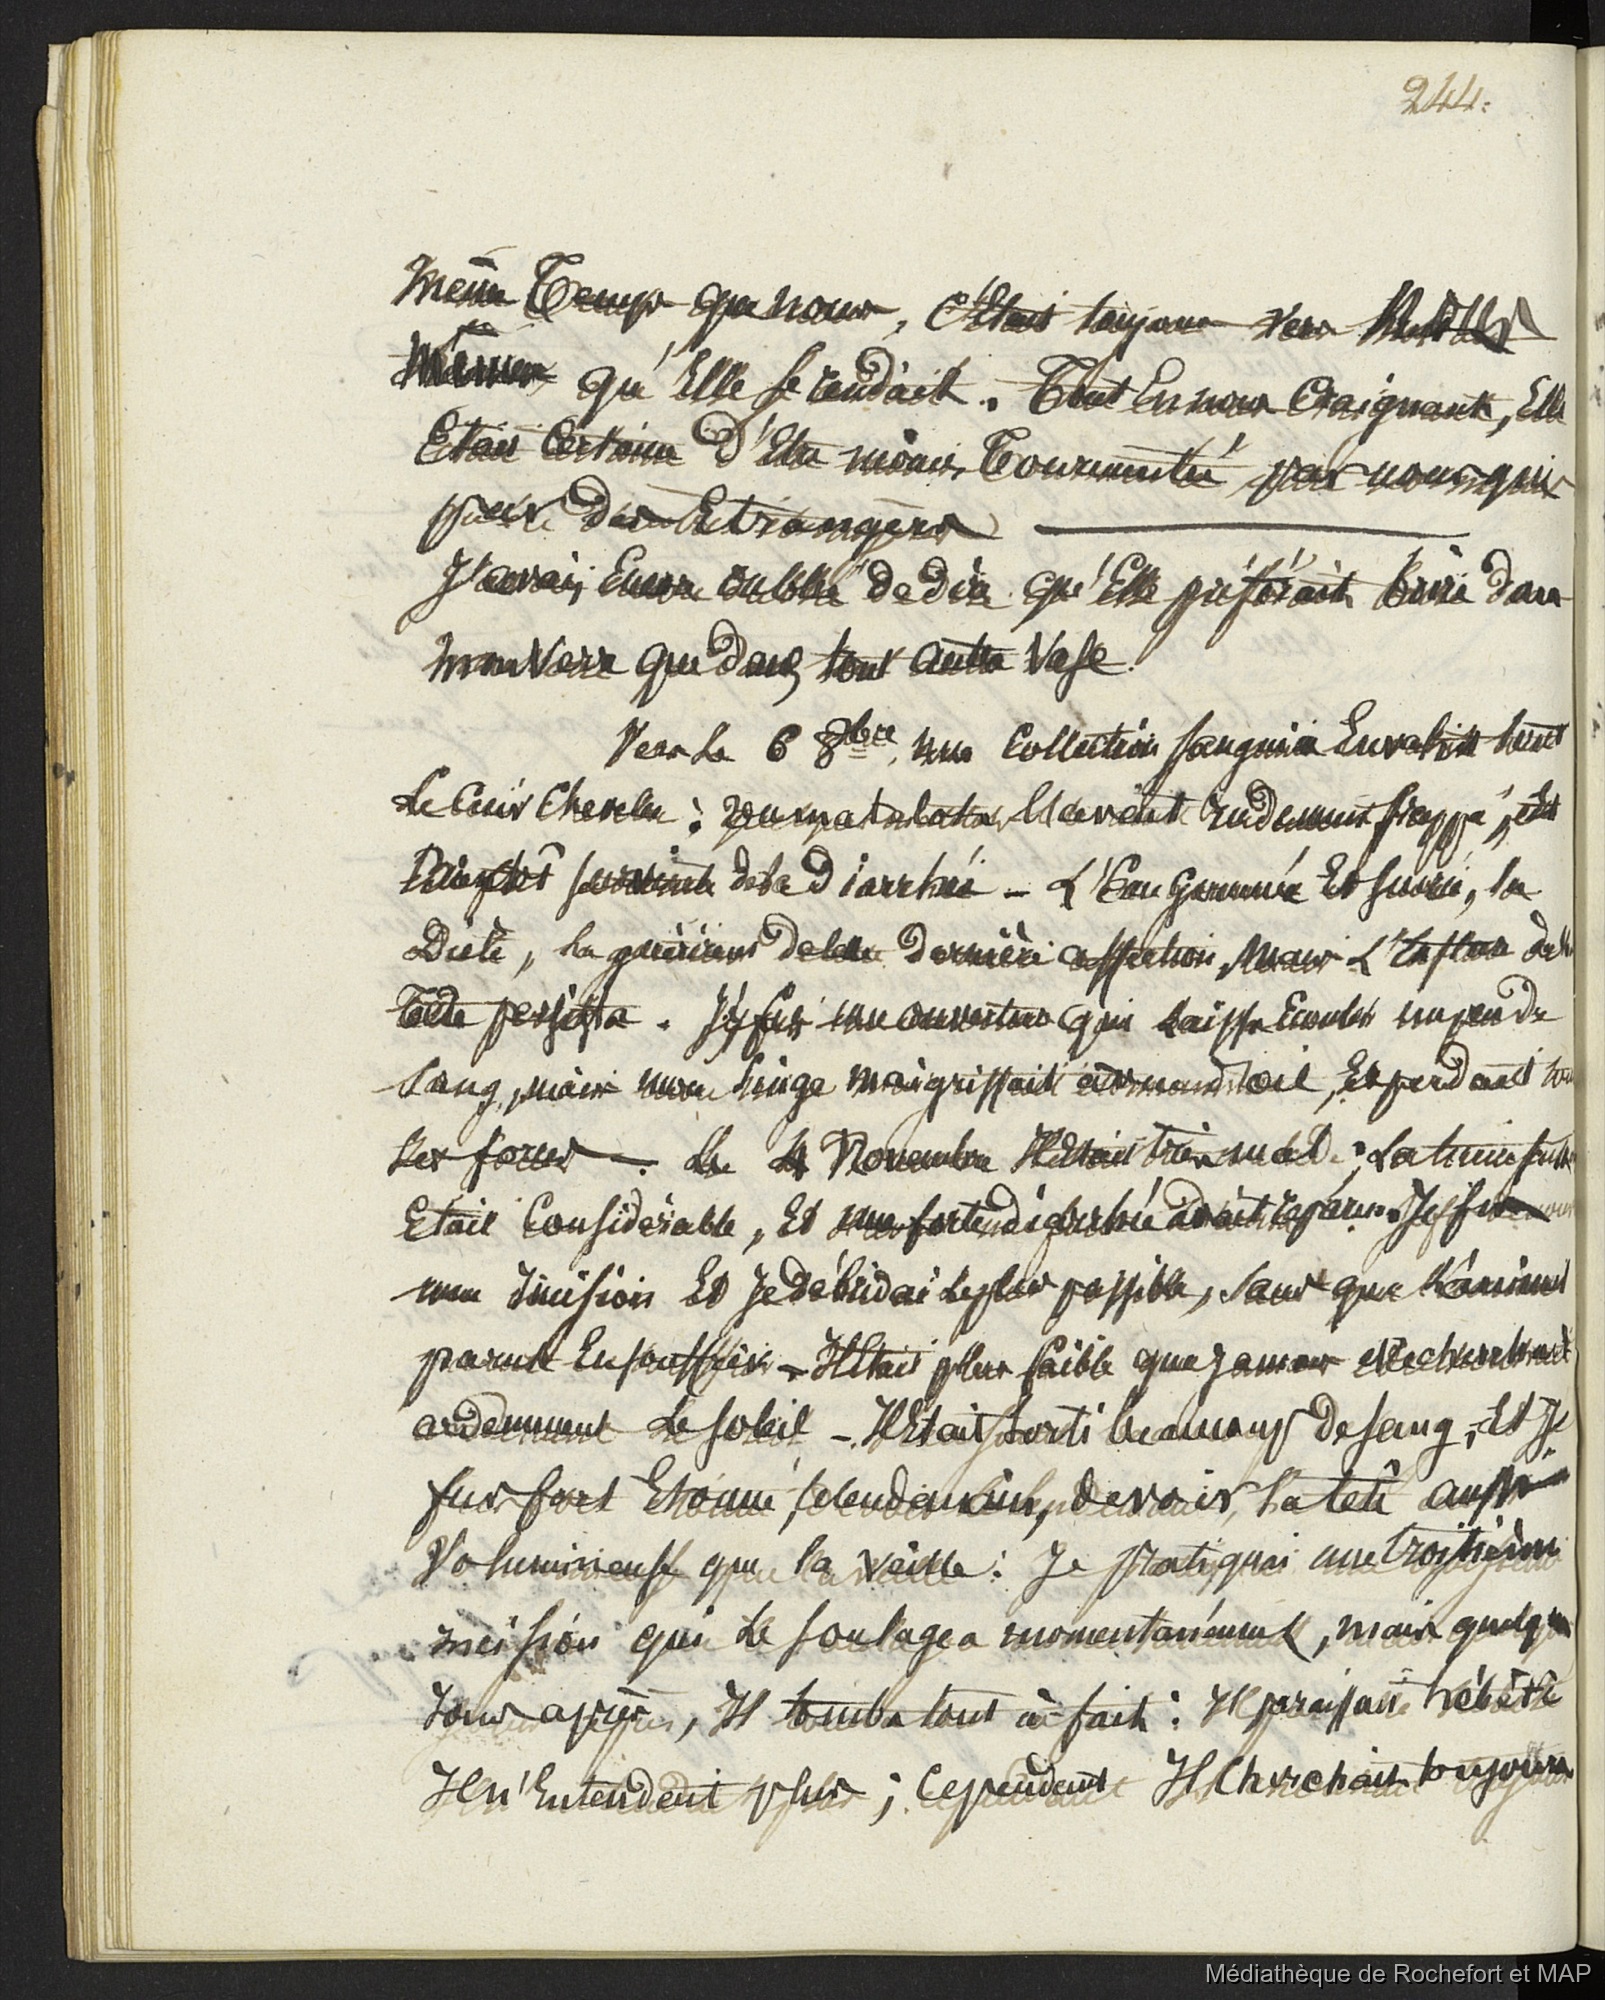 244.
même Temps que nous, C'était toujours vers
qu'Elle se rendait. Tout En nous Craignant, Elle
Etait Certaine d'Etre moins Tourmentée par nous que
par des Etrangers
J'avais Encore oublié de dire qu'Elle préférait boire dans
mon Verre que dans tout autre Vase.
Vers Le 6 8bre, une Collection sanguine Envahit tout
Le Cuir Chevelu : un matelot l'avait rudement frappé, Et
survint de la Diarrhée - L'Eau Gommée Et sucrée, la
Diète, la guérirent de cette dernière affection, Mais L'Enflure de la
Tête persista. J'y fis une ouverture qui Laissa Ecouler un peu de
Sang, mais mon Singe maigrissait à vue d'oeil, Et perdait
ses forces -. Le 4 Novembre Il Etait très malade ; La tumeur
Etait Considérable, Et une forte diarrhée avait reparu. Je fis
une Incision Et Je débridai Le plus possible, sans que L'animal
parut En souffrir - Il Etait plus faible que jamais et recherchait
ardemment Le soleil - Il Etait sorti beaucoup de sang, Et Je
fus fort Etonné, le lendemain, de voir la tête aussi
Volumineuse que la veille : Je pratiquai une troisième
incision qui Le soulagea momentanément, mais quelques
Jours après, Il tomba tout à fait : Il paraissait hébété
Il n'Entendait plus ; Cependant Il Cherchait toujours
Médiathèque de Rochefort et MAP